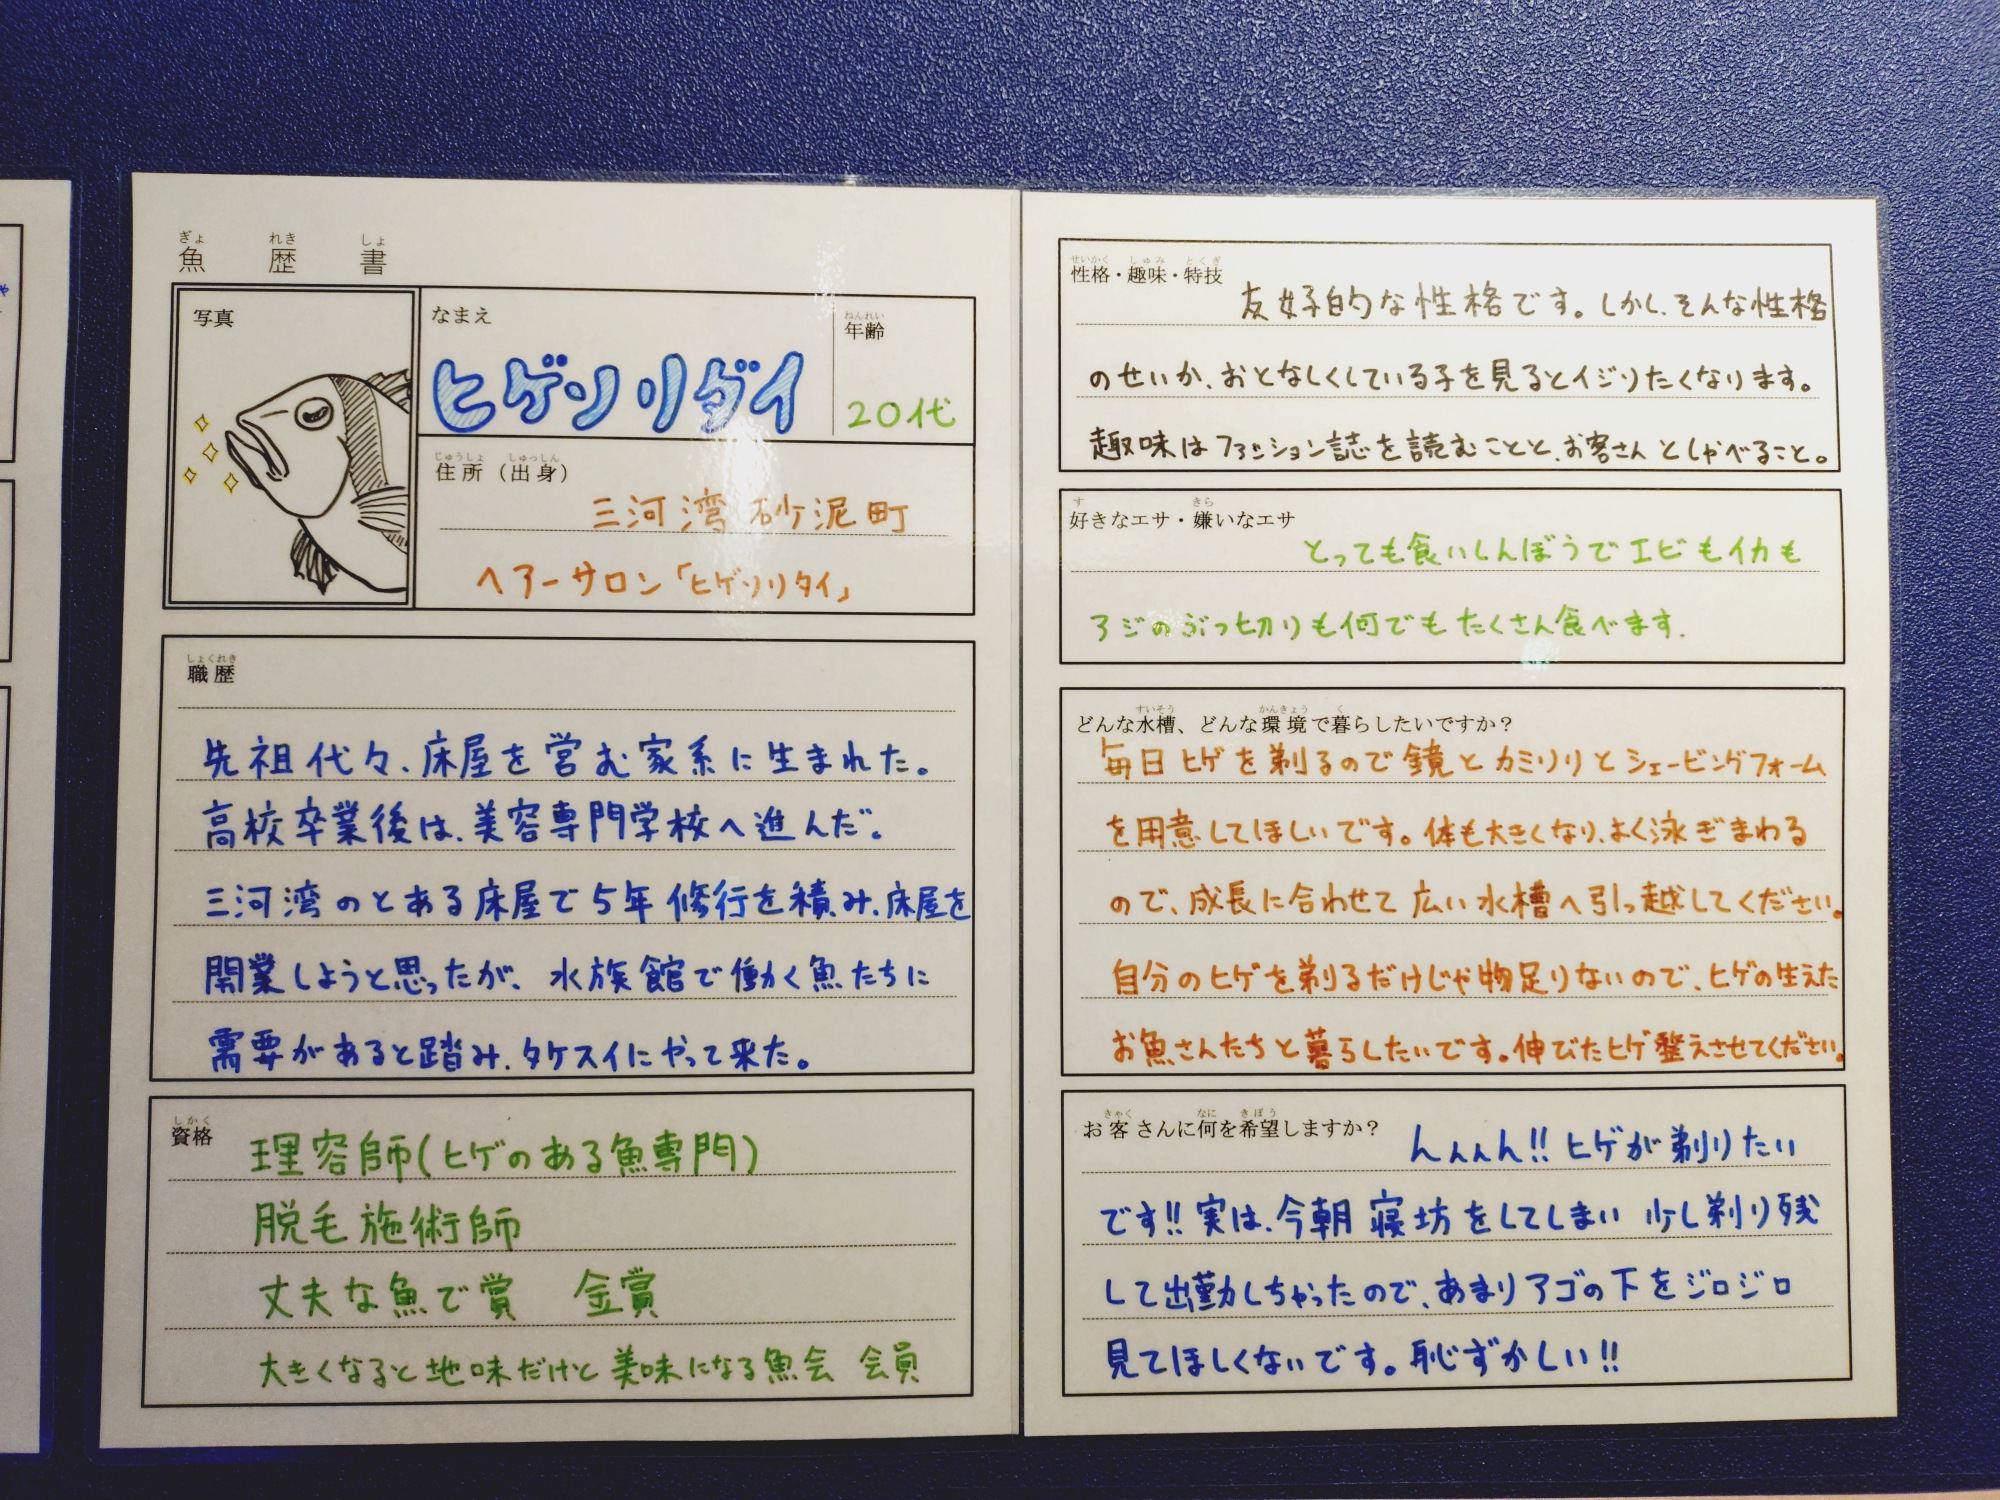 魚歴書
ぎょ れき しょ
写真
なまえ
ヒゲソリダイ
年齢
ねんれい
20代
住所（出身）
じゅうしょ しゅっしん
三河湾 砂泥町
ヘアーサロン「ヒゲソリタイ」
職歴
しょくれき
先祖代々、床屋を営む家系に生まれた。
高校卒業後は、美容専門学校へ進んだ。
三河湾のとある床屋で5年修行を積み、床屋を
開業しようと思ったが、水族館で働く魚たちに
需要があると踏み、タケスイにやって来た。
資格
しかく
理容師(ヒゲのある魚専門)
脱毛施術師
丈夫な魚で賞 金賞
大きくなると地味だけど美味になる魚会 会員
性格・趣味・特技
せいかく しゅみ とくぎ
友好的な性格です。しかし、そんな性格
のせいか、おとなしくしている子を見るとイジりたくなります。
趣味はファッション誌を読むことと、お客さんとしゃべること。
好きなエサ・嫌いなエサ
す きら
とっても食いしんぼうでエビもイカも
アジのぶつ切りも何でもたくさん食べます。
どんな水槽、どんな環境で暮らしたいですか？
すいそう かんきょう く
毎日ヒゲを剃るので鏡とカミソリとシェービングフォーム
を用意してほしいです。体も大きくなり、よく泳ぎまわる
ので、成長に合わせて広い水槽へ引っ越してください。
自分のヒゲを剃るだけじゃ物足りないので、ヒゲの生えた
お魚さんたちと暮らしたいです。伸びたヒゲ整えさせてください。
お客さんに何を希望しますか？
きゃく なに きぼう
んんんん!! ヒゲが剃りたい
です!! 実は、今朝寝坊をしてしまい少し剃り残
して出勤しちゃったので、あまりアゴの下をジロジロ
見てほしくないです。恥ずかしい!!